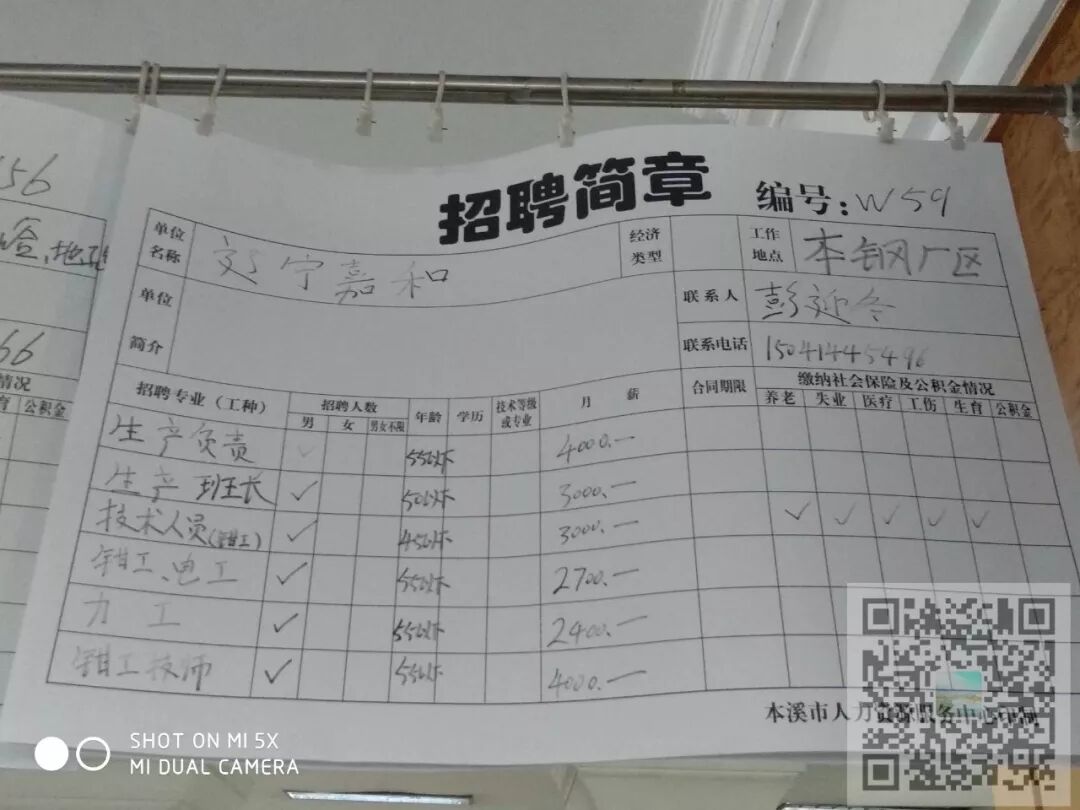 招聘简章
编号：W59
单位名称 辽宁嘉和 经济类型 工作地点 本钢厂区
单位简介 联系人 彭迎冬
联系电话 15041445496
招聘专业（工种） 招聘人数 年龄 学历 技术等级或专业 月薪 合同期限 缴纳社会保险及公积金情况
男 女 男女不限 养老 失业 医疗 工伤 生育 公积金
生产负责 ✓ 55以下 4000.—
生产班长 ✓ 50以下 3000.—
技术人员(钳工) ✓ 45以下 3000.— ✓ ✓ ✓ ✓ ✓
钳工、电工 ✓ 55以下 2700.—
力工 ✓ 55以下 2400.—
钳工技师 ✓ 55以下 4000.—
本溪市人力资源服务中心印制
56
66
情况
育 公积金
SHOT ON MI 5X
MI DUAL CAMERA